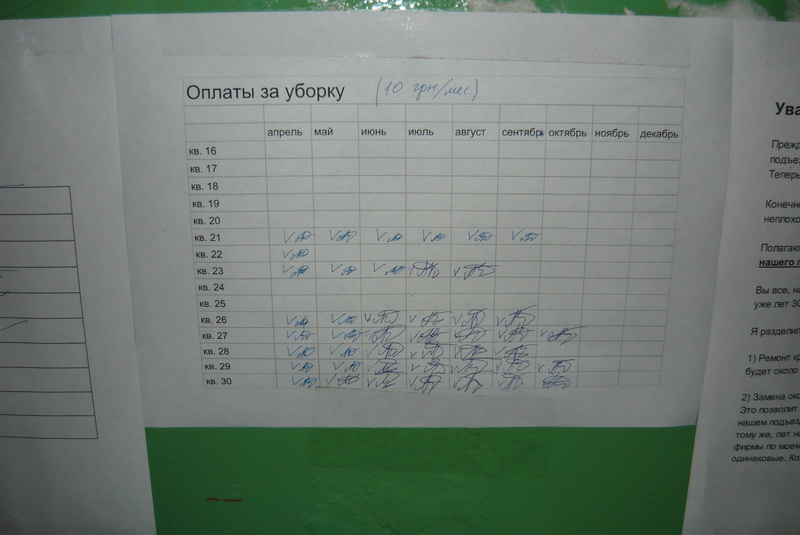 Оплаты за уборку (10 грн/мес)
апрель май июнь июль август сентябрь октябрь ноябрь декабрь
кв. 16
кв. 17
кв. 18
кв. 19
кв. 20
кв. 21
кв. 22
кв. 23
кв. 24
кв. 25
кв. 26
кв. 27
кв. 28
кв. 29
кв. 30
Ува
Прежд
подъез
Теперь
Конечно
неплохо
Полагаю
нашего п
Вы все, на
уже лет 30
Я разделил
1) Ремонт кр
будет около
2) Замена око
Это позволит
нашем подъезд
тому же, лет на
фирмы по моем
одинаковые. Ко